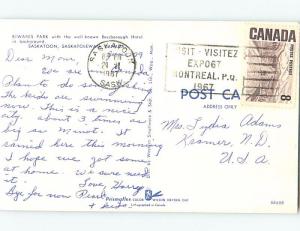 KIWANIS PARK with the well-known Bessborough Hotel
in background.
SASKATOON, SASKATCHEWAN
Dear Mom,
We are
Plan to do some
the birds are swimming
now. This is a nice
city, about 2 times as
big as Minot. It
rained here this morning
I hope we got some
at home. We sure need
it. Love, Harry
Bye for now Pearl
+ kids
SASKATOON
PM
21 VI
1967
SASK.
VISIT - VISITEZ
EXPO67
MONTREAL, P.Q.
1967
CANADA
8
POST CA
Address Only
Mrs. Lydia Adams
Kramer, N.D.
U.S.A.
Lithographed in Canada